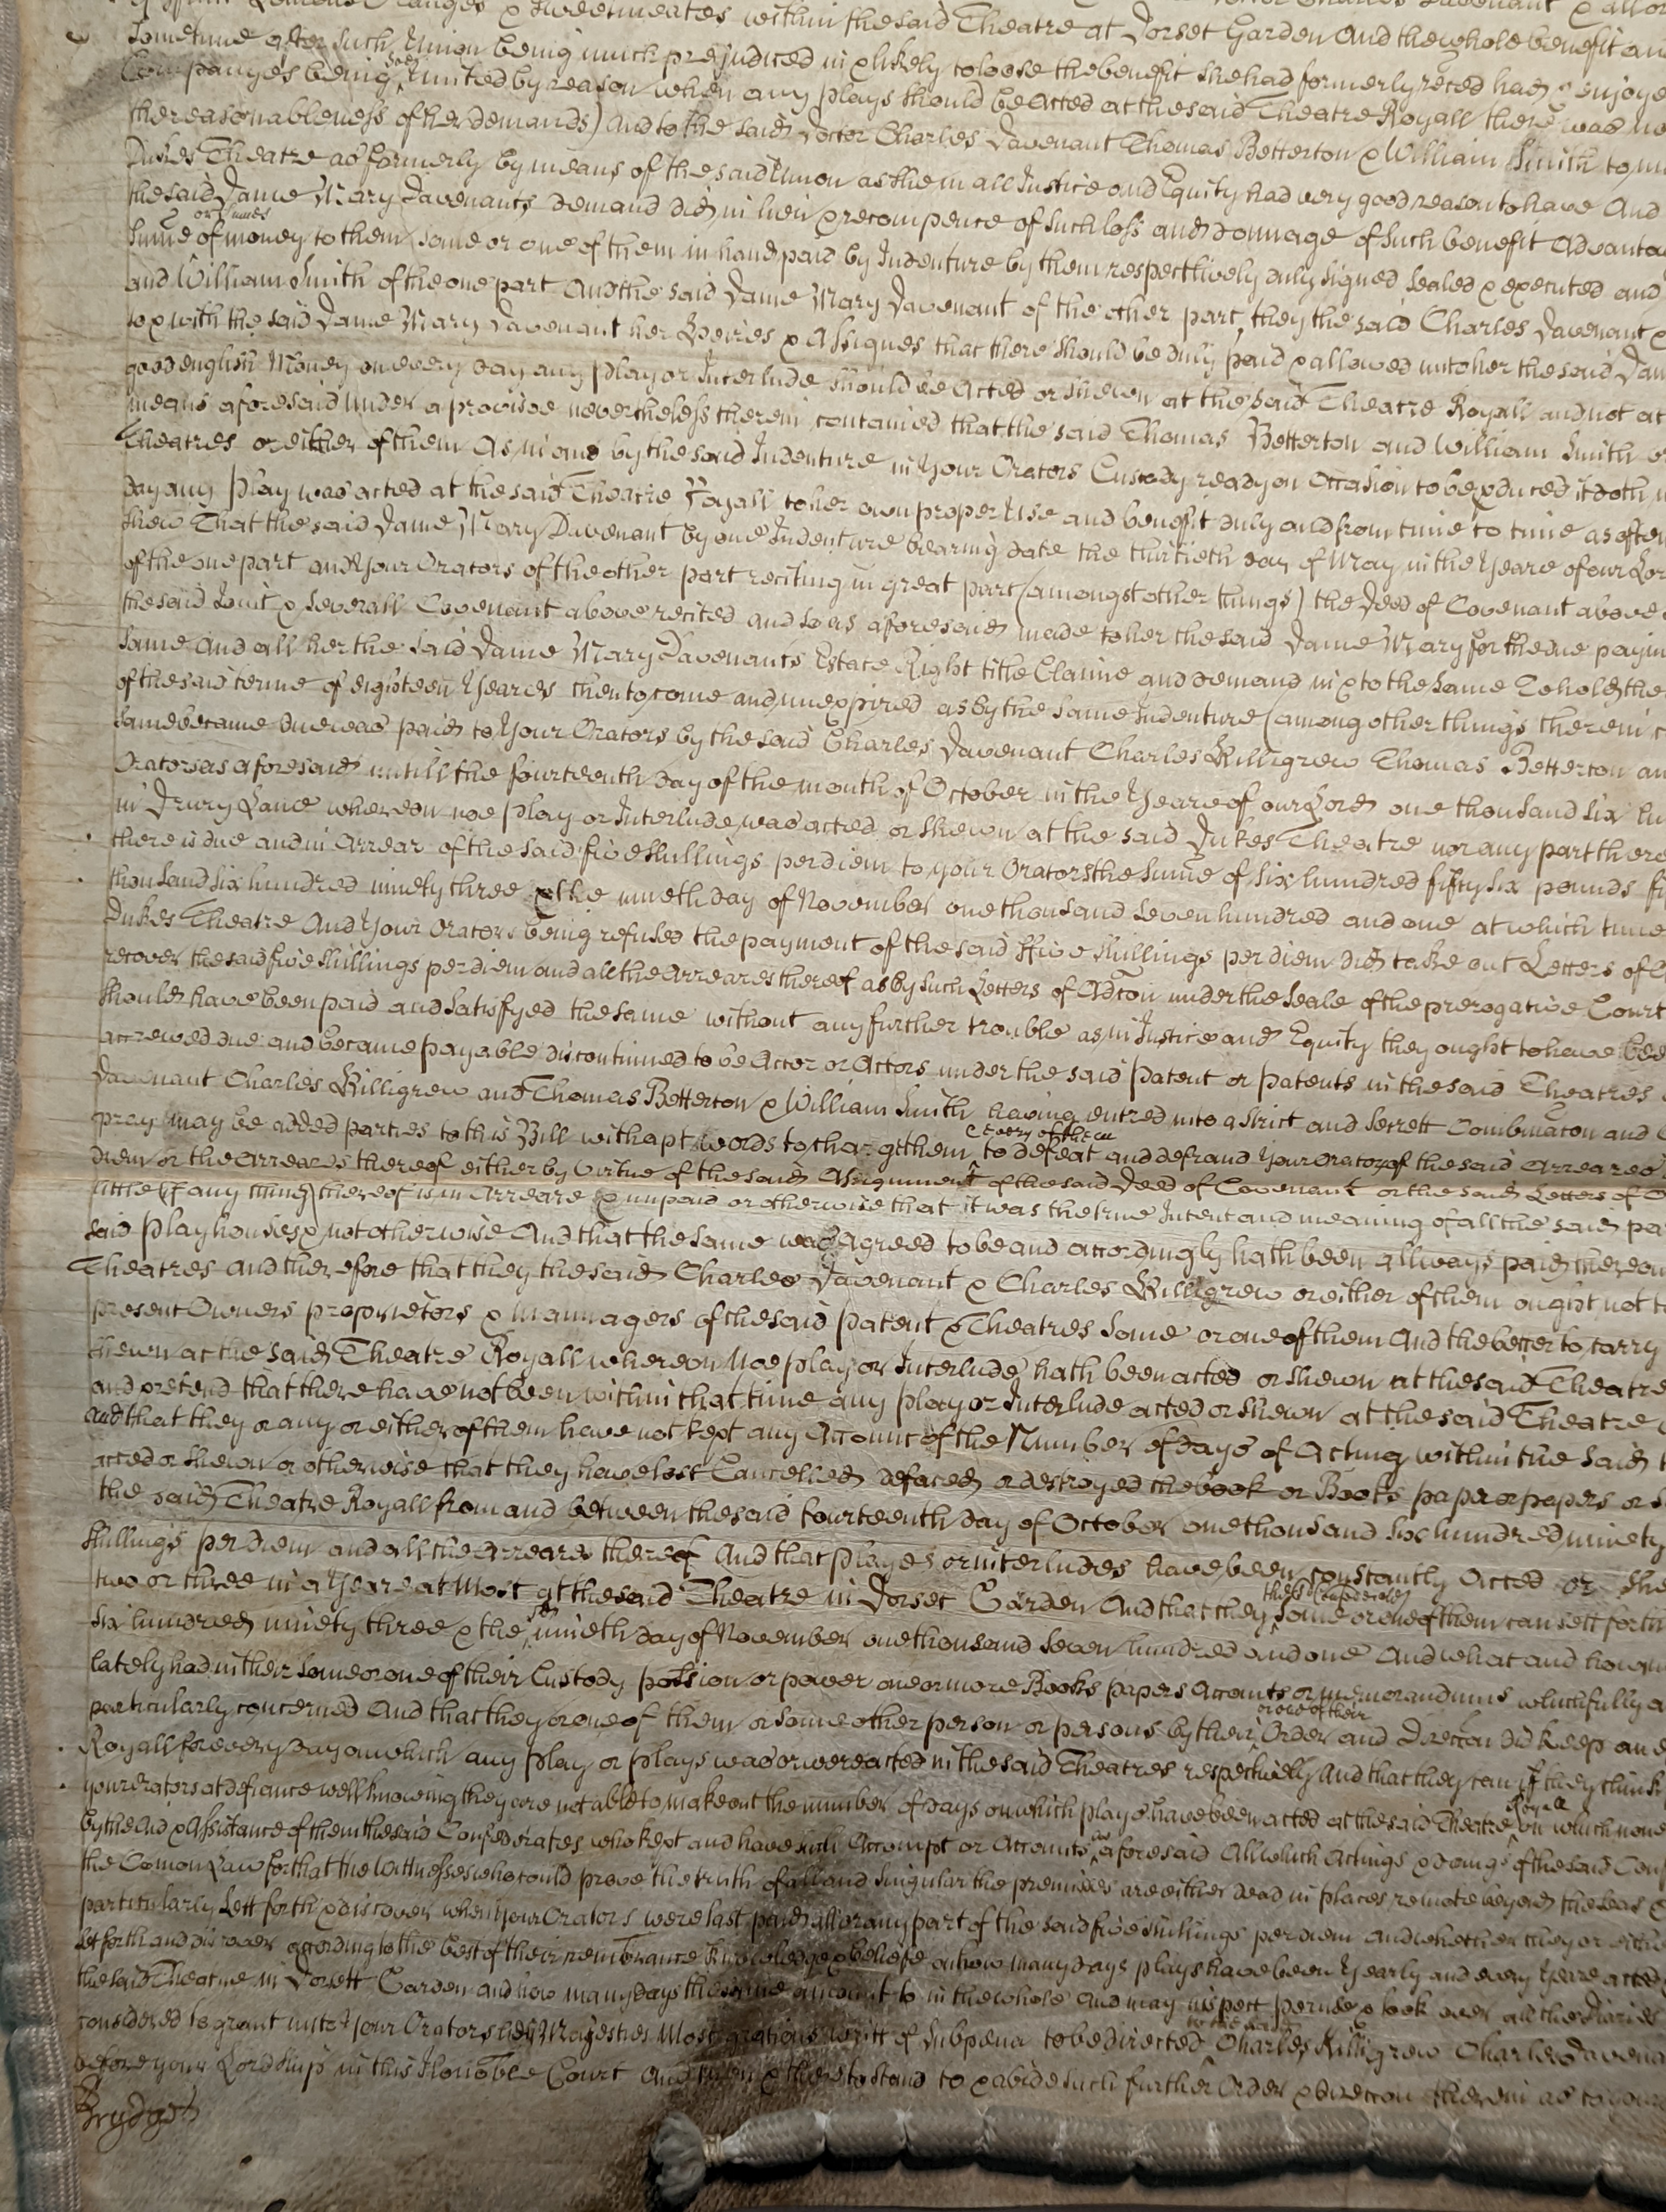 Lemons Oranges & Sweetmeates within the said Theatre at Dorset Garden And the whole benefit
Sometime after such Union being much prejudiced in & likely to loose the benefit she had formerly reced had & enjoye
Companyes being soe United by reason when any plays should be Acted at the said Theatre Royall there was no
the reasonableness of her demands) And to the said Doctor Charles Davenant Thomas Betterton & William Smith
Dukes Theatre as formerly by means of the said Union as she in all Justice and Equity had very good reason to have And
the said Dame Mary Davenants demand did in lieu & recompence of such loss and dammage of such benefit Advanta
Summe or summes of money to them some or one of them in hand paid by Indenture by them respectively duly signed sealed & executed and
and William Smith of the one part And the said Dame Mary Davenant of the other part, they the said Charles Davenant &
to & with the said Dame Mary Davenant her Heires & Assignes that there should be duly paid & allowed unto her the said Dam
good english Money on every day any play or Interlude should be Acted or shewn at the said Theatre Royall and not at
means aforesaid under a provisoe nevertheless therein contained that the said Thomas Betterton and William Smith or
Theatres or either of them As in and by the said Indenture in Your Orators Custody ready on Occasion to be pduced it doth
day any play was acted at the said Theatre Royall to her own proper Use and benefit duly and from time to time as often
shew That the said Dame Mary Davenant by one Indenture bearing date the thirtieth day of May in the Yeare of our Lor
of the one part and Your Orators of the other part reciting in great part (amongst other things) the Deed of Covenant above
the said Joint & severall Covenant above recited and so as aforesaid made to her the said Dame Mary for the due paym
same And all her the said Dame Mary Davenants Estate Right title Claime and demand in & to the same To hold the
of the said terme of eighteen Yeares then to come and unexpired as by the same Indenture (among other things therein
same became due was paid to Your Orators by the said Charles Davenant Charles Killigrew Thomas Betterton an
Orators as aforesaid untill the fourteenth day of the month of October in the Yeare of our Lord one thousand six hu
in Drury Lane whereon noe play or Interlude was acted or shewn at the said Dukes Theatre nor any part there
there is due and in Arrear of the said five shillings per diem to your Orators the summe of six hundred fifty six pounds fi
thousand six hundred ninety three & the nineth day of November one thousand seven hundred and one at which time
Dukes Theatre And Your Orators being refused the payment of the said ffive shillings per diem did take out Letters of
recover the said five shillings per diem and all the Arreares thereof as by such Letters of Adcon under the seale of the prerogative Court
should have been paid and satisfyed the same without any further trouble as in Justice and Equity they ought to have bee
accrewed due and became payable discontinued to be Actor or Actors under the said patent or patents in the said Theatres
Davenant Charles Killigrew and Thomas Betterton & William Smith having entred into a strict and secrett Combinacon and
pray may be added parties to this Bill with apt words to charge them & every of them to defeat and defraud Your Orators of the said Arreares
diem or the arreares thereof either by virtue of the said Assignment of the said Deed of Covenant or the said Letters of
little (if any thing) thereof is in Arreare & unpaid or otherwise that it was the true Intent and meaning of all the said pa
said playhouses & not otherwise And that the same was Agreed to be and accordingly hath been allways paid thereon
Theatres and therefore that they the said Charles Davenant & Charles Killigrew or either of them ought not t
present Owners proprietors & Mannagers of the said patent & Theatres some or one of them And the better to carry
shewn at the said Theatre Royall whereon Noe play or Interlude hath been acted or shewn at the said Theatre
and pretend that there have not been within that time any play or Interlude acted or shewn at the said Theatre
and that they or any or either of them have not kept any Account of the Number of days of Acting within the said
acted or shewn or otherwise that they have lost Cancelled defaced or destroyed the book or Books paper or papers or
the said Theatre Royall from and between the said fourteenth day of October one thousand six hundred ninety
shillings per diem and all the arreares thereof And that playes or interludes have been constantly Acted or she
two or three in a Yeare at Most at the said Theatre in Dorset Garden And that they the said Confederates some or one of them can sett forth
six hundred ninety three & the said nineth day of November one thousand seven hundred and one And what and how
lately had in their some or one of their Custody possion or power one or more Books papers Accounts or memorandums which fully
particularly concerned And that they or one of them or some other person or persons by their or one of their Order and Direccon did keep an
Royall for every day on which any play or plays was or were acted in the said Theatres respectively And that they can if they think
your Orators at defiance well knowing they are not able to make out the number of days on which plays have been acted at the said Theatre Royall on which none
by the Aid & Assistance of them the said Confederates who kept and have such Accompt or Accounts as aforesaid All which Actings & doings of the said Con
the Comon Law for that the Witnesses who could prove the truth of all and singular the premisses are either dead in places remote beyond the seas
particularly sett forth & discover when Your Orators were last paid all or any part of the said five shillings per diem and whether they or eithe
set forth and discover according to the best of their remembrance knowledge & beliefe on how many days plays have been Yearly and every Yeare acted
the said Theatre in Dorsett Garden and how many days the same amount to in the whole And may inspect peruse & look over all the diaries
considered to grant unto Your Orators her Majesties Most gratious writt of Subpena to be directed to the said Charles Killigrew Charles Davena
before your Lordship in this Honoble Court And then & there to stand to & abide such further Order & Direccon therein as to your
Brydges